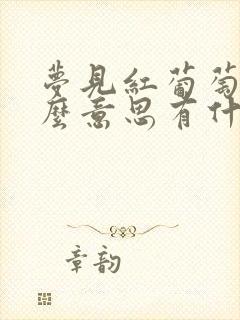 夢見紅葡萄
麼意思有什
章韵